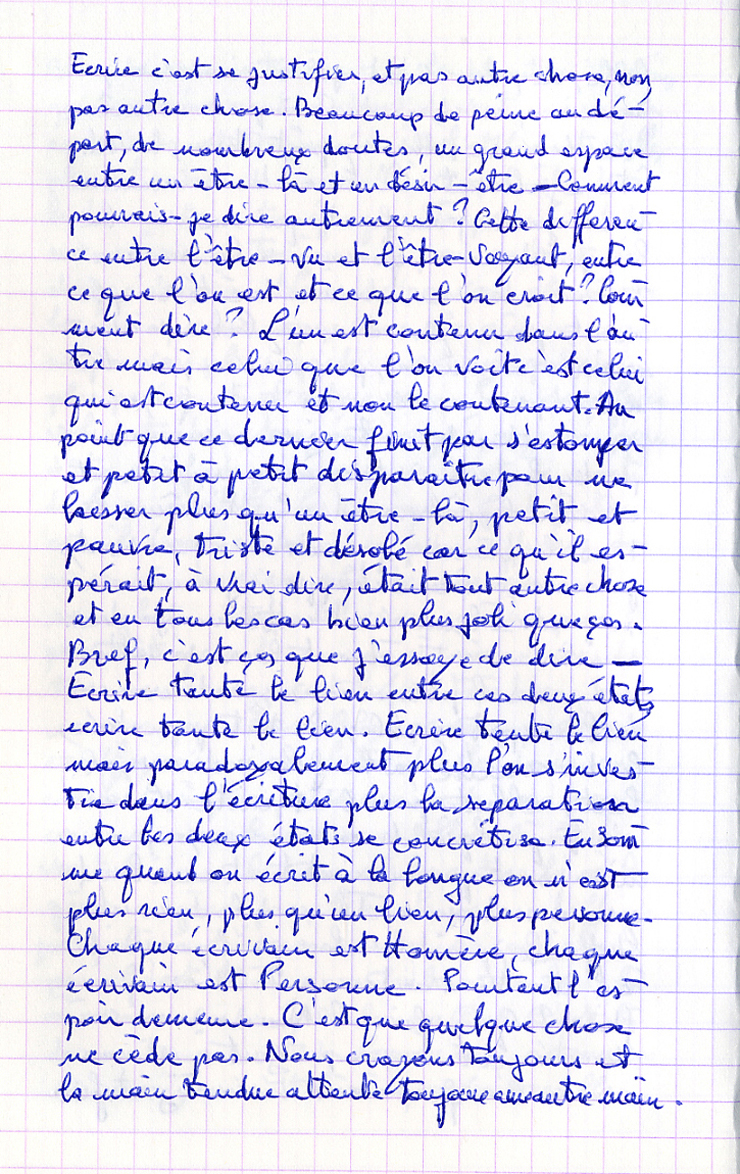 Ecrire c'est se justifier, et pas autre chose, non,
pas autre chose. Beaucoup de peine au dé-
part, de nombreux doutes, un grand espace
entre un être-là et un désir-être — Comment
pourrais-je dire autrement ? Cette différen-
ce entre l'être-vu et l'être-voyant, entre
ce que l'on est et ce que l'on croit ? Com-
ment dire ? L'un est contenu dans l'au-
tre mais celui que l'on voit c'est celui
qui est contenu et non le contenant. Au
point que ce dernier finit par s'estomper
et petit à petit disparaître pour ne
laisser plus qu'un être-là, petit et
pauvre, triste et désolé car ce qu'il es-
pérait, à vrai dire, était tout autre chose
et en tous les cas bien plus joli que ça.
Bref, c'est ça que j'essaye de dire —
Ecrire tente le lien entre ces deux états,
écrire tente le lien. Ecrire tente le lien
mais paradoxalement plus l'on s'inves-
tie dans l'écriture plus la séparation
entre les deux états se concrétise. En som-
me quand on écrit à la longue on n'est
plus rien, plus qu'un lien, plus personne.
Chaque écrivain est Homère, chaque
écrivain est Personne. Pourtant l'es-
poir demeure. C'est que quelque chose
ne cède pas. Nous croyons toujours et
la main tendue attend toujours une autre main.